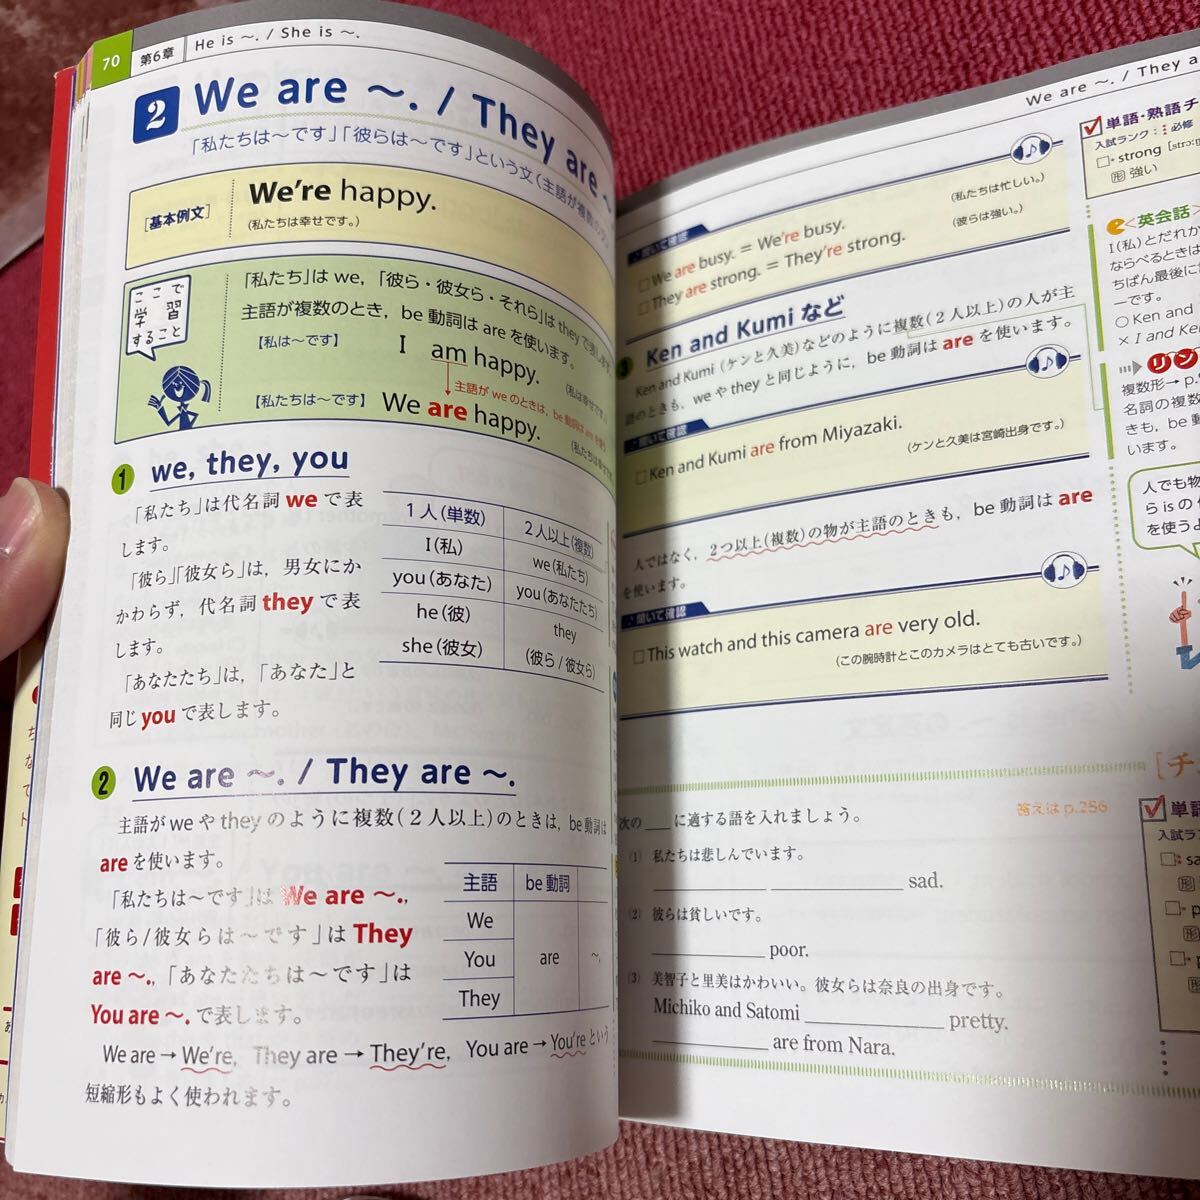 70 第6章 He is ～. / She is ～.
2 We are ～. / They are ～
「私たちは～です」「彼らは～です」という文（主語が複数の文）
［基本例文］
We're happy.
（私たちは幸せです。）
ここで
学習
すること
「私たち」は we,「彼ら・彼女ら・それら」は they で表します
主語が複数のとき，be 動詞は are を使います。
【私は～です】 I am happy. （私は幸せです。）
主語が we のときは，be 動詞は are を使う
【私たちは～です】 We are happy. （私たちは幸せです
1 we, they, you
「私たち」は代名詞 we で表
します。
「彼ら」「彼女ら」は，男女にか
かわらず，代名詞 they で表
します。
「あなたたち」は，「あなた」と
同じ you で表します。
1人（単数） 2人以上（複数）
I（私） we（私たち）
you（あなた） you（あなたたち）
he（彼） they
she（彼女） （彼ら/彼女ら）
2 We are ～. / They are ～.
主語が we や they のように複数（2人以上）のときは，be 動詞は
are を使います。
「私たちは～です」は We are ～.,
「彼ら/彼女らは～です」は They
are ～.,「あなたたちは～です」は
You are ～. で表します。
主語 be 動詞
We
You are ～.
They
We are → We're, They are → They're, You are → You're という
短縮形もよく使われます。
We are ～. / They a
聞いて確認
□ We are busy. = We're busy. （私たちは忙しい。）
□ They are strong. = They're strong. （彼らは強い。）
3 Ken and Kumi など
Ken and Kumi（ケンと久美）などのように複数（2人以上）の人が主
語のときも，we や they と同じように，be 動詞は are を使います。
聞いて確認
□ Ken and Kumi are from Miyazaki.
（ケンと久美は宮崎出身です。）
人ではなく，2つ以上（複数）の物が主語のときも，be 動詞は are
を使います。
聞いて確認
□ This watch and this camera are very old.
（この腕時計とこのカメラはとても古いです。）
［チ
答えは p.256
次の ___ に適する語を入れましょう。
(1) 私たちは悲しんでいます。
____________ ____________ sad.
(2) 彼らは貧しいです。
____________ poor.
(3) 美智子と里美はかわいい。彼女らは奈良の出身です。
Michiko and Satomi ____________ pretty.
____________ are from Nara.
単語・熟語チ
入試ランク： 必修
□ strong [strɔ:ŋ
形 強い
＜英会話＞
I（私）とだれか
ならべるときは
ちばん最後に
ーです。
○ Ken and
× I and Ke
リン
複数形→ p.
名詞の複数
きも，be 動
います。
人でも物
ら is の
を使うよ
単語
入試ランク
□ sa
形
□ p
形
□ p
形